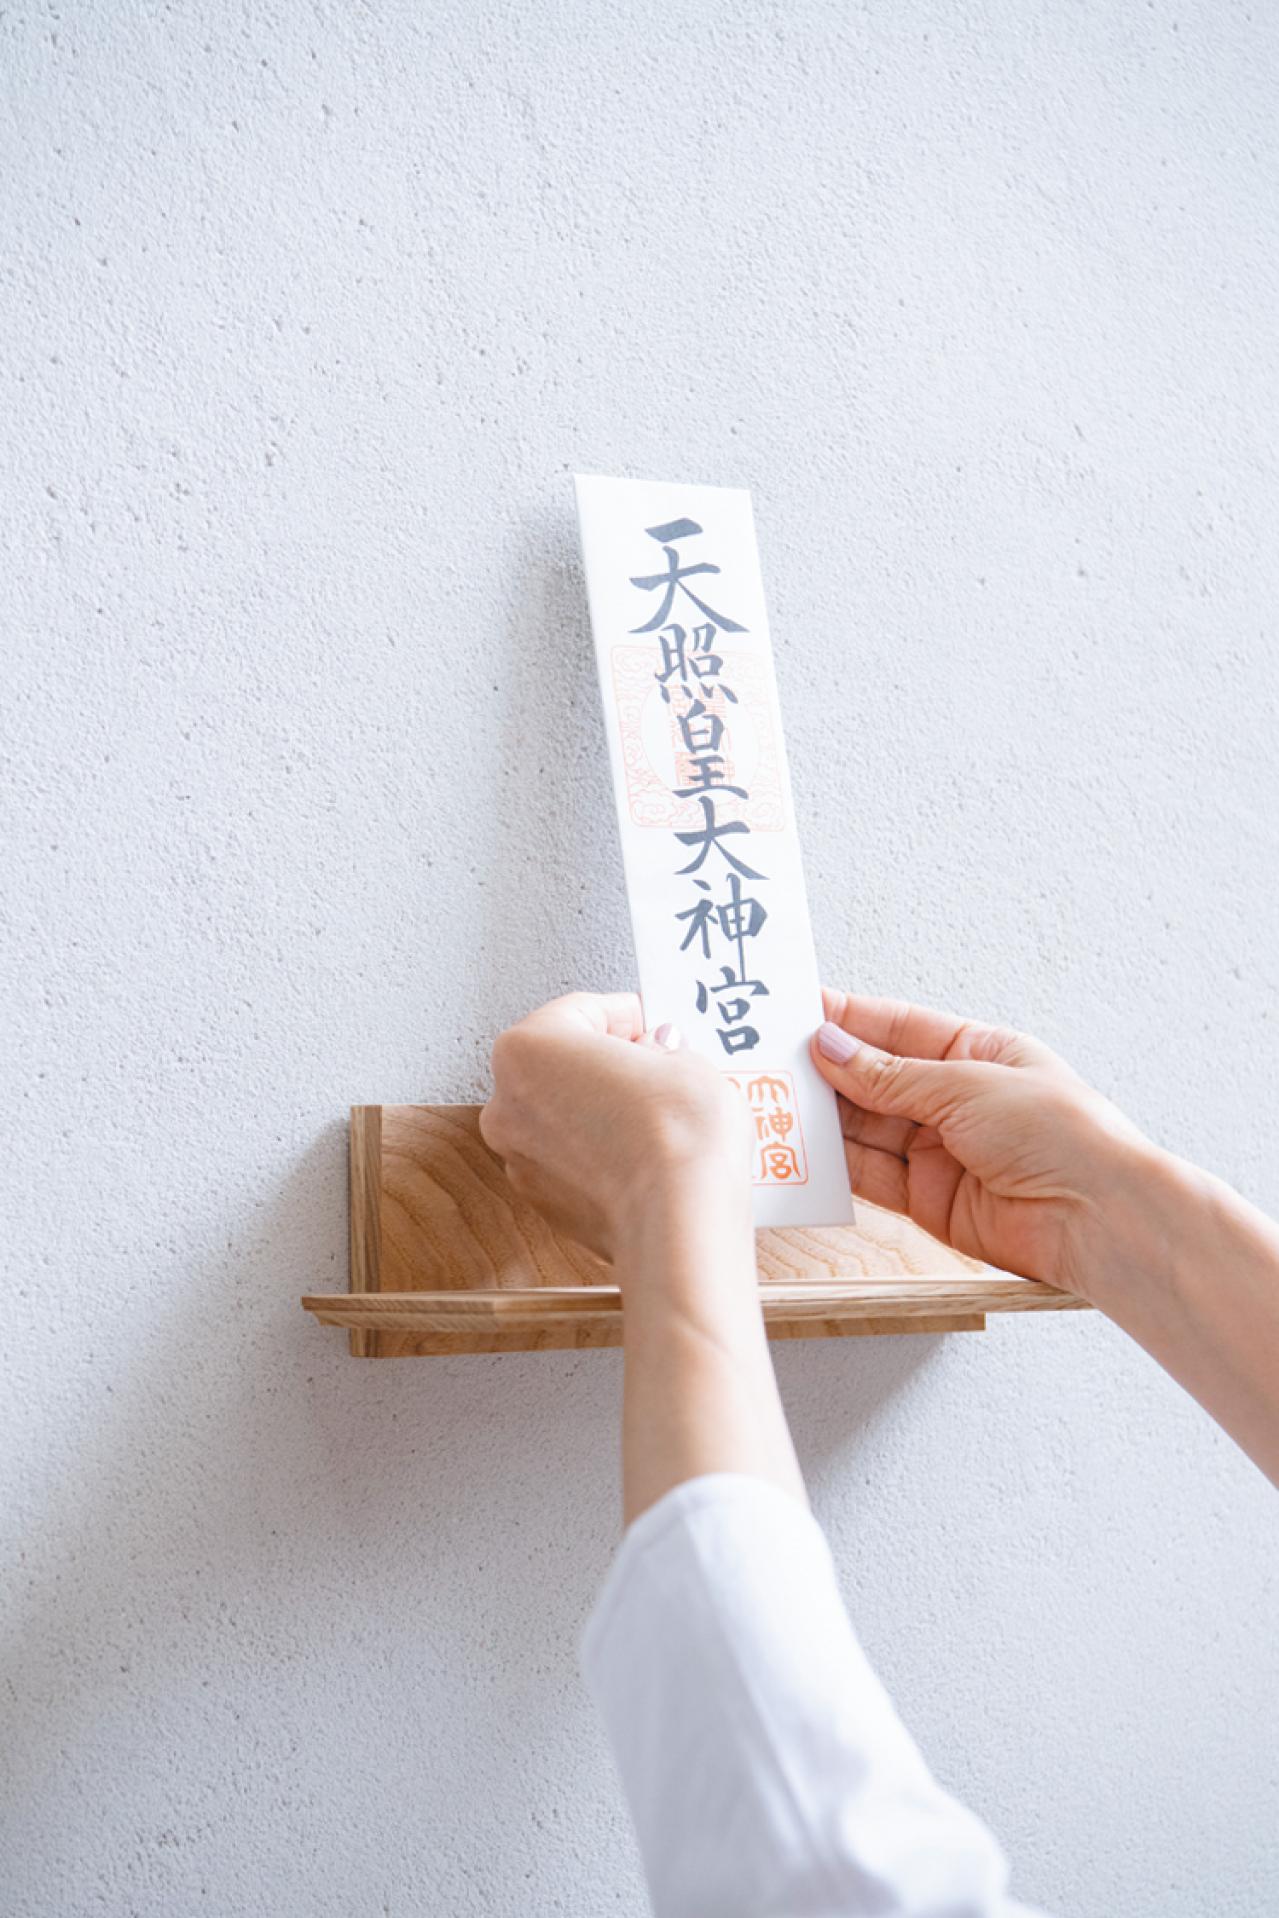 天照皇大神宮
大神宮